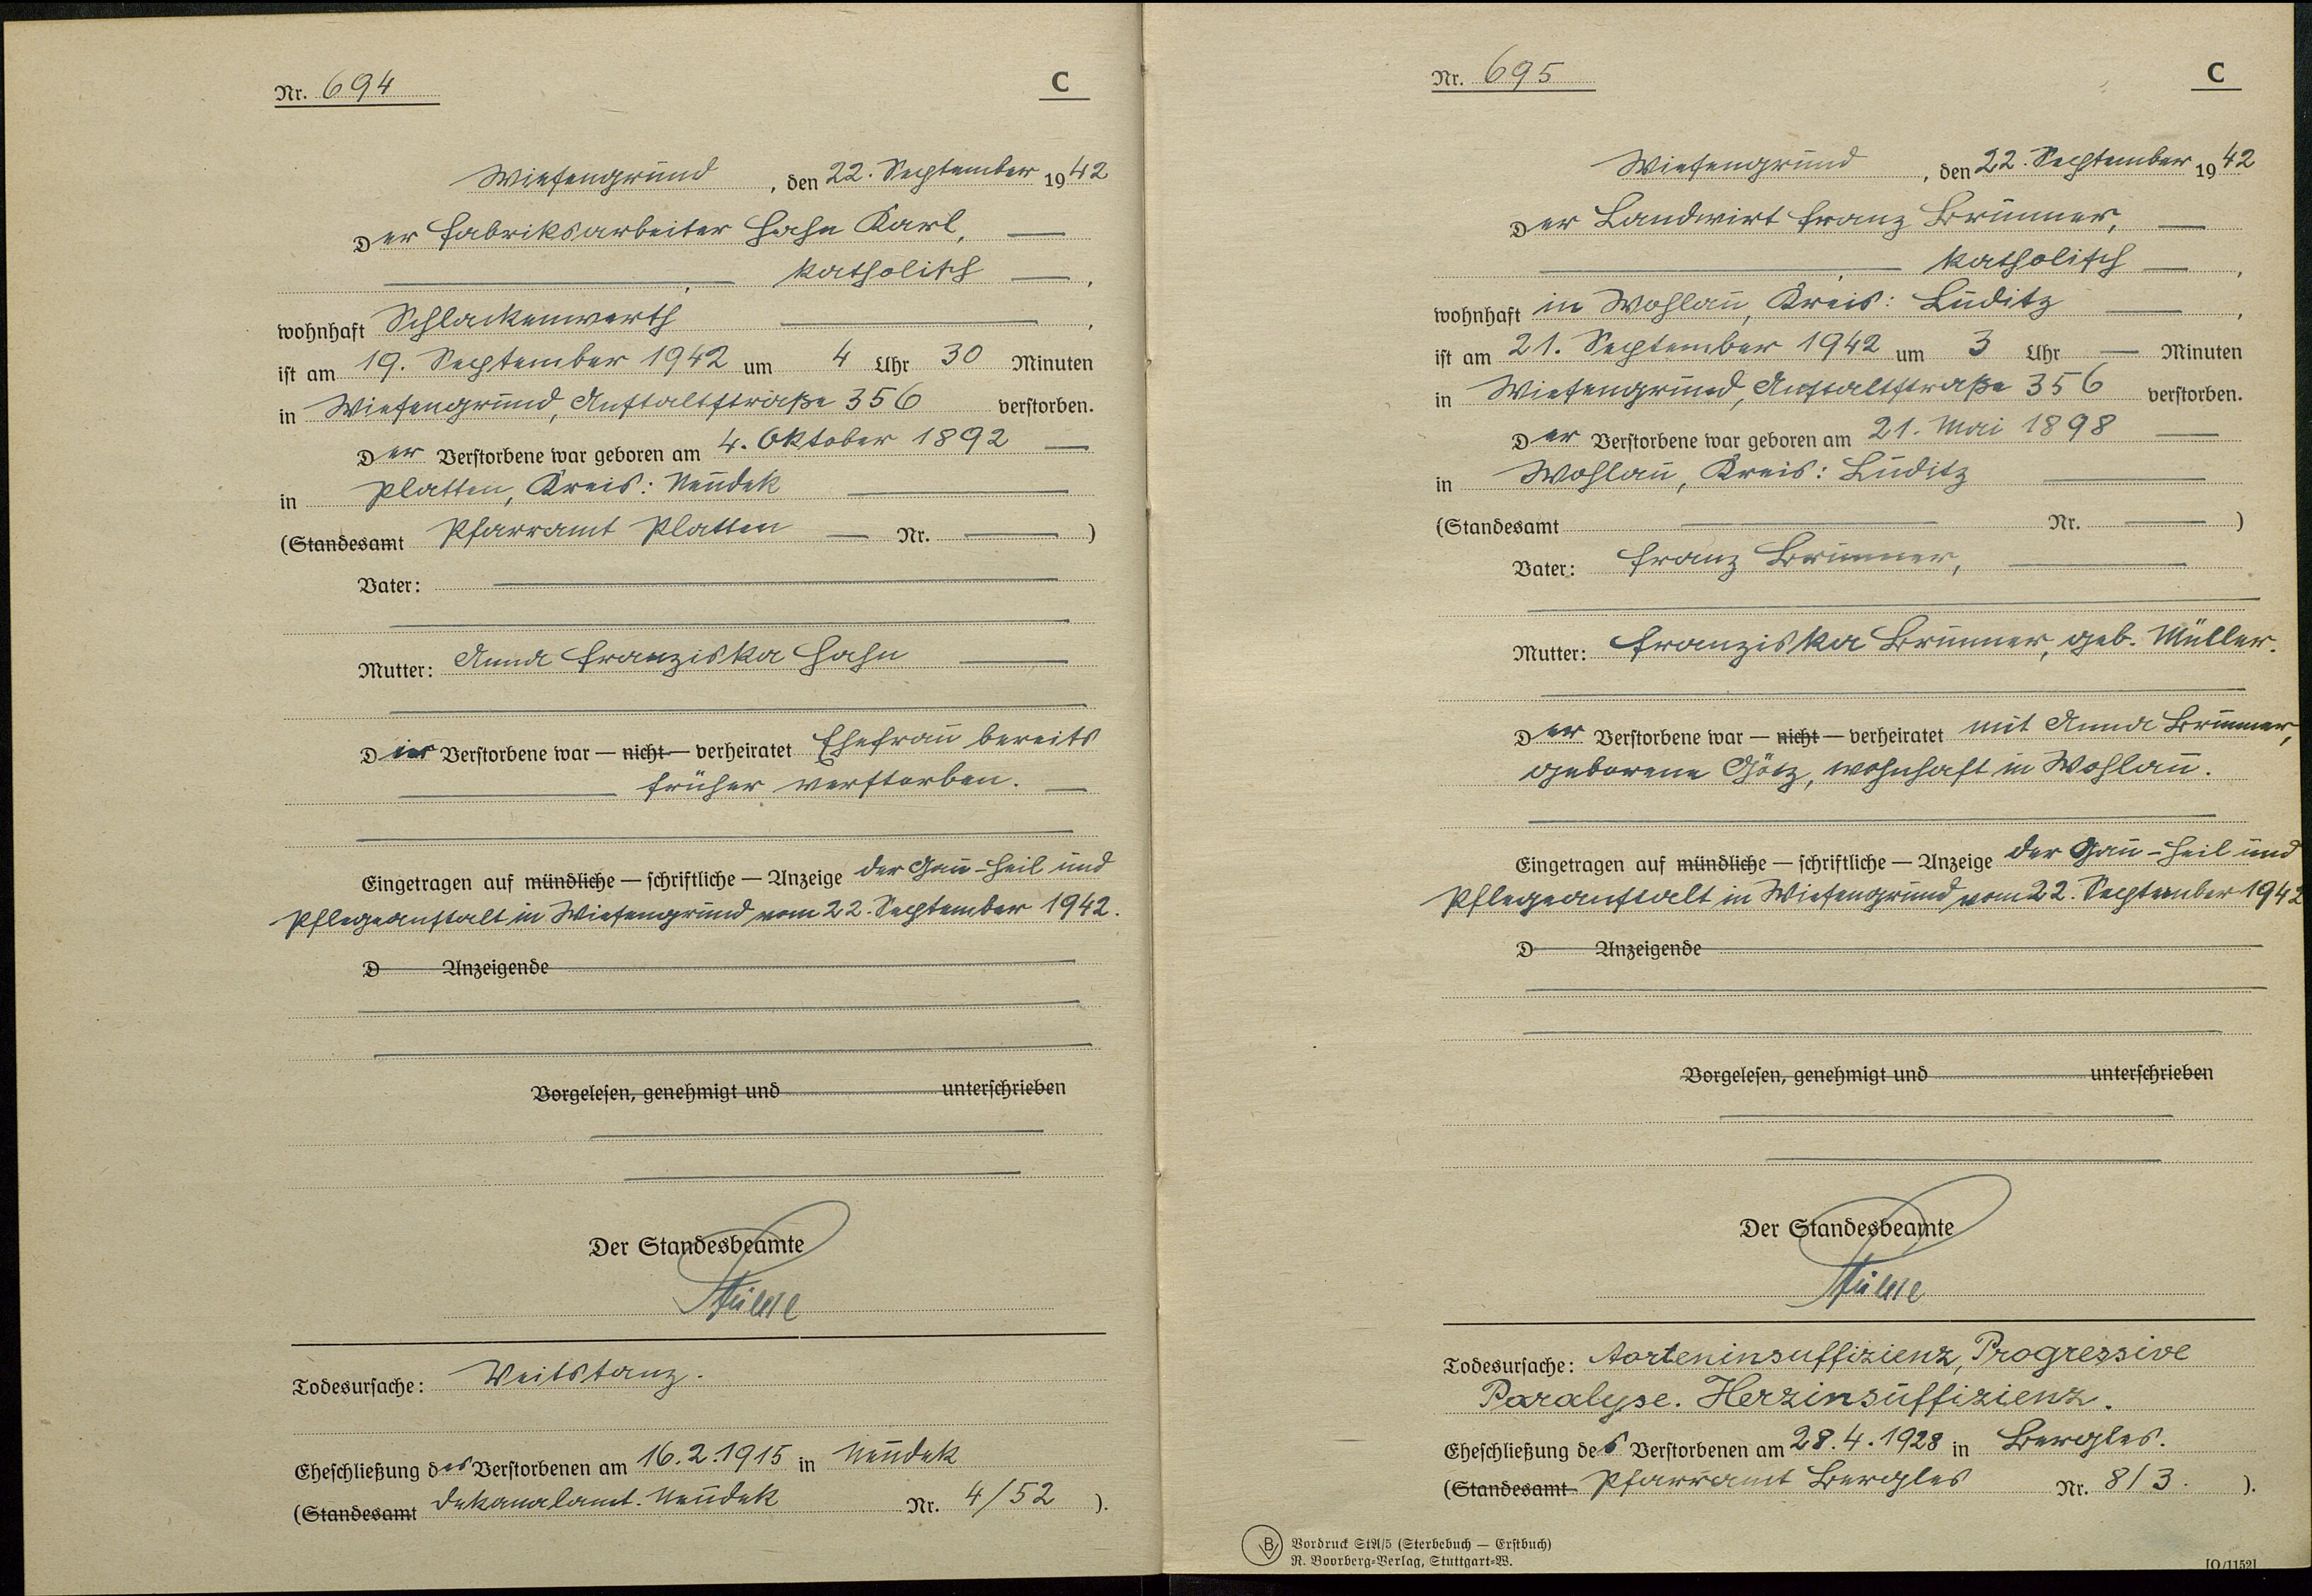 Nr. 694
C
Wiesengrund, den 22. September 1942
Der Fabriksarbeiter Hahn Karl,
katholisch,
wohnhaft Schlackenwerth,
ist am 19. September 1942 um 4 Uhr 30 Minuten
in Wiesengrund, Anstaltstraße 356 verstorben.
Der Verstorbene war geboren am 4. Oktober 1892
in Platten, Kreis: Neudek
(Standesamt Pfarramt Platten Nr. )
Vater:
Mutter: Anna Franziska Hahn
Der Verstorbene war — nicht — verheiratet Ehefrau bereits
früher verstorben.
Eingetragen auf mündliche — schriftliche — Anzeige der Gau-Heil und
Pflegeanstalt in Wiesengrund vom 22. September 1942.
D Anzeigende
Vorgelesen, genehmigt und unterschrieben
Der Standesbeamte
Todesursache: Veitstanz.
Eheschließung des Verstorbenen am 16.2.1915 in Neudek
(Standesamt Dekanalamt. Neudek Nr. 4/52 ).
Nr. 695
C
Wiesengrund, den 22. September 1942
Der Landwirt Franz Brunner,
katholisch,
wohnhaft in Wohlau, Kreis: Luditz,
ist am 21. September 1942 um 3 Uhr — Minuten
in Wiesengrund, Anstaltstraße 356 verstorben.
Der Verstorbene war geboren am 21. Mai 1898
in Wohlau, Kreis: Luditz
(Standesamt Nr. )
Vater: Franz Brunner,
Mutter: Franziska Brunner, geb. Müller.
Der Verstorbene war — nicht — verheiratet mit Anna Brunner,
geborene Götz, wohnhaft in Wohlau.
Eingetragen auf mündliche — schriftliche — Anzeige der Gau-Heil und
Pflegeanstalt in Wiesengrund vom 22. September 1942
D Anzeigende
Vorgelesen, genehmigt und unterschrieben
Der Standesbeamte
Todesursache: Aorteninsuffizienz, Progressive
Paralyse. Herzinsuffizienz.
Eheschließung des Verstorbenen am 28.4.1928 in Bergles.
(Standesamt Pfarramt Bergles Nr. 8/3. ).
B Vordruck StA/5 (Sterbebuch — Erstbuch)
R. Boorberg-Verlag, Stuttgart-W.
[O/1152]